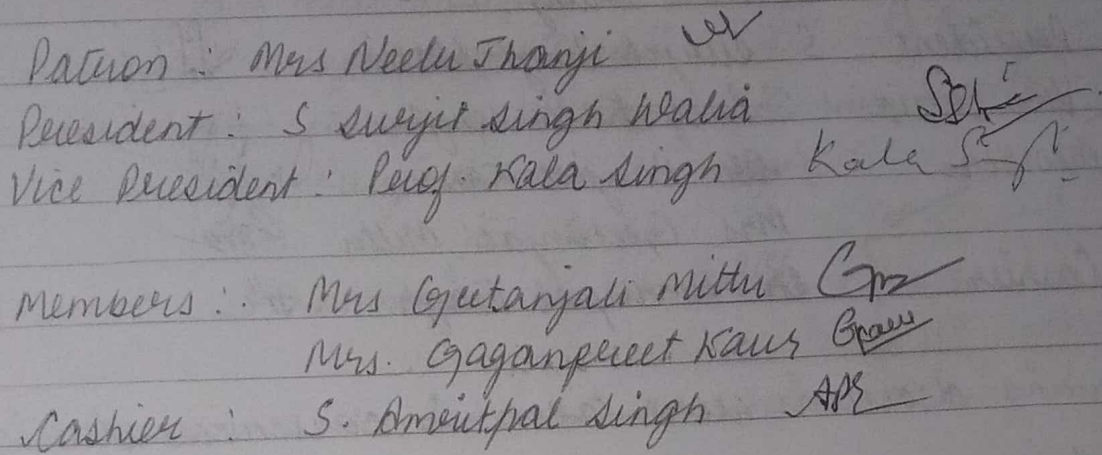 Patron : Mrs Neelu Jhanji
President : S Surjit Singh Walia
Vice President : Prof. Kala Singh Kala Singh
Members : Mrs Geetanjali Mittu
Mrs. Gaganpreet Kaur Gkaur
Cashier : S. Amritpal Singh APS